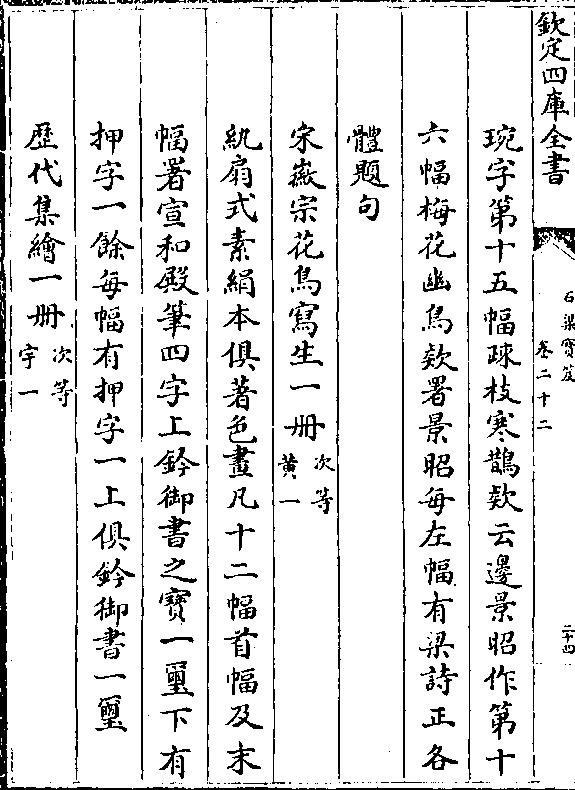 欽定四庫全書
石渠寶笈
卷二十二
二十四
琬字第十五幅疎枝寒鵲欵云邊景昭作第十
六幅梅花幽鳥欵署景昭每左幅有梁詩正各
體題句
宋徽宗花鳥寫生一册 次等 黄一
紈扇式素絹本俱著色畫凡十二幅首幅及末
幅署宣和殿筆四字上鈐御書之寶一璽下有
押字一餘每幅有押字一上俱鈐御書一璽
歴代集繪一册 次等 宇一